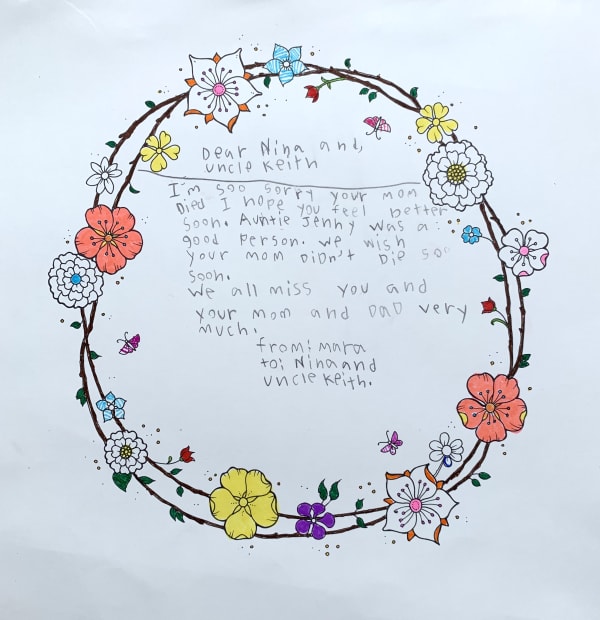 Dear Nina and,
uncle Keith
I'm soo sorry your mom
Died I hope you feel better
soon. Auntie Jenny was a
good Person. we wish
your mom DiDn't Die soo
soon.
we all miss you and
your mom and DaD very
much.
from: mara
to: Nina and
uncle Keith.